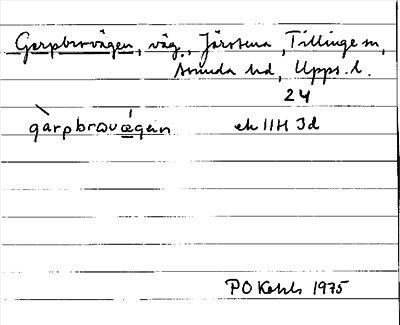 Garpbrovägen, väg, Järstena, Tillinge sn,
Åsunda hd, Upps. l.
24
gàrpbrωvǽgen ek 11H 3d
PO Kohls 1975